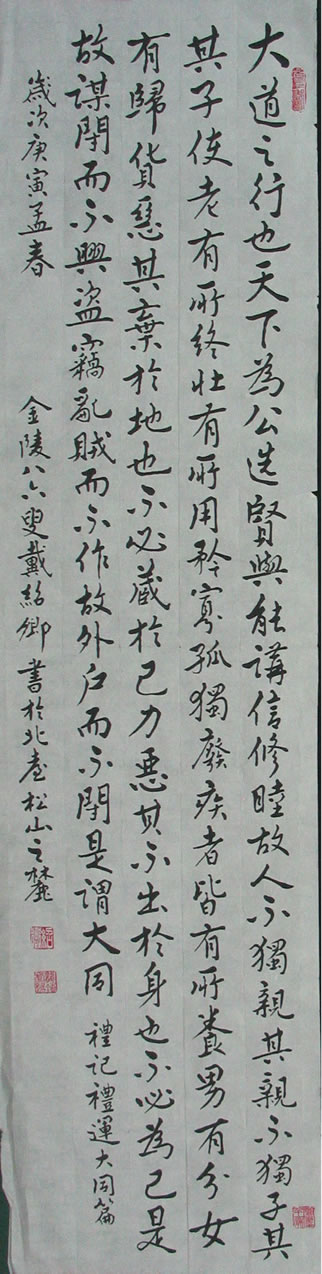 大道之行也天下為公選賢與能講信修睦故人不獨親其親不獨子其
其子使老有所終壯有所用矜寡孤獨廢疾者皆有所養男有分女
有歸貨惡其棄於地也不必藏於己力惡其不出於身也不必為己是
故謀閉而不興盜竊亂賊而不作故外戶而不閉是謂大同 禮記禮運大同篇
歲次庚寅孟春 金陵八六叟戴紹卿書於北臺松山之麓